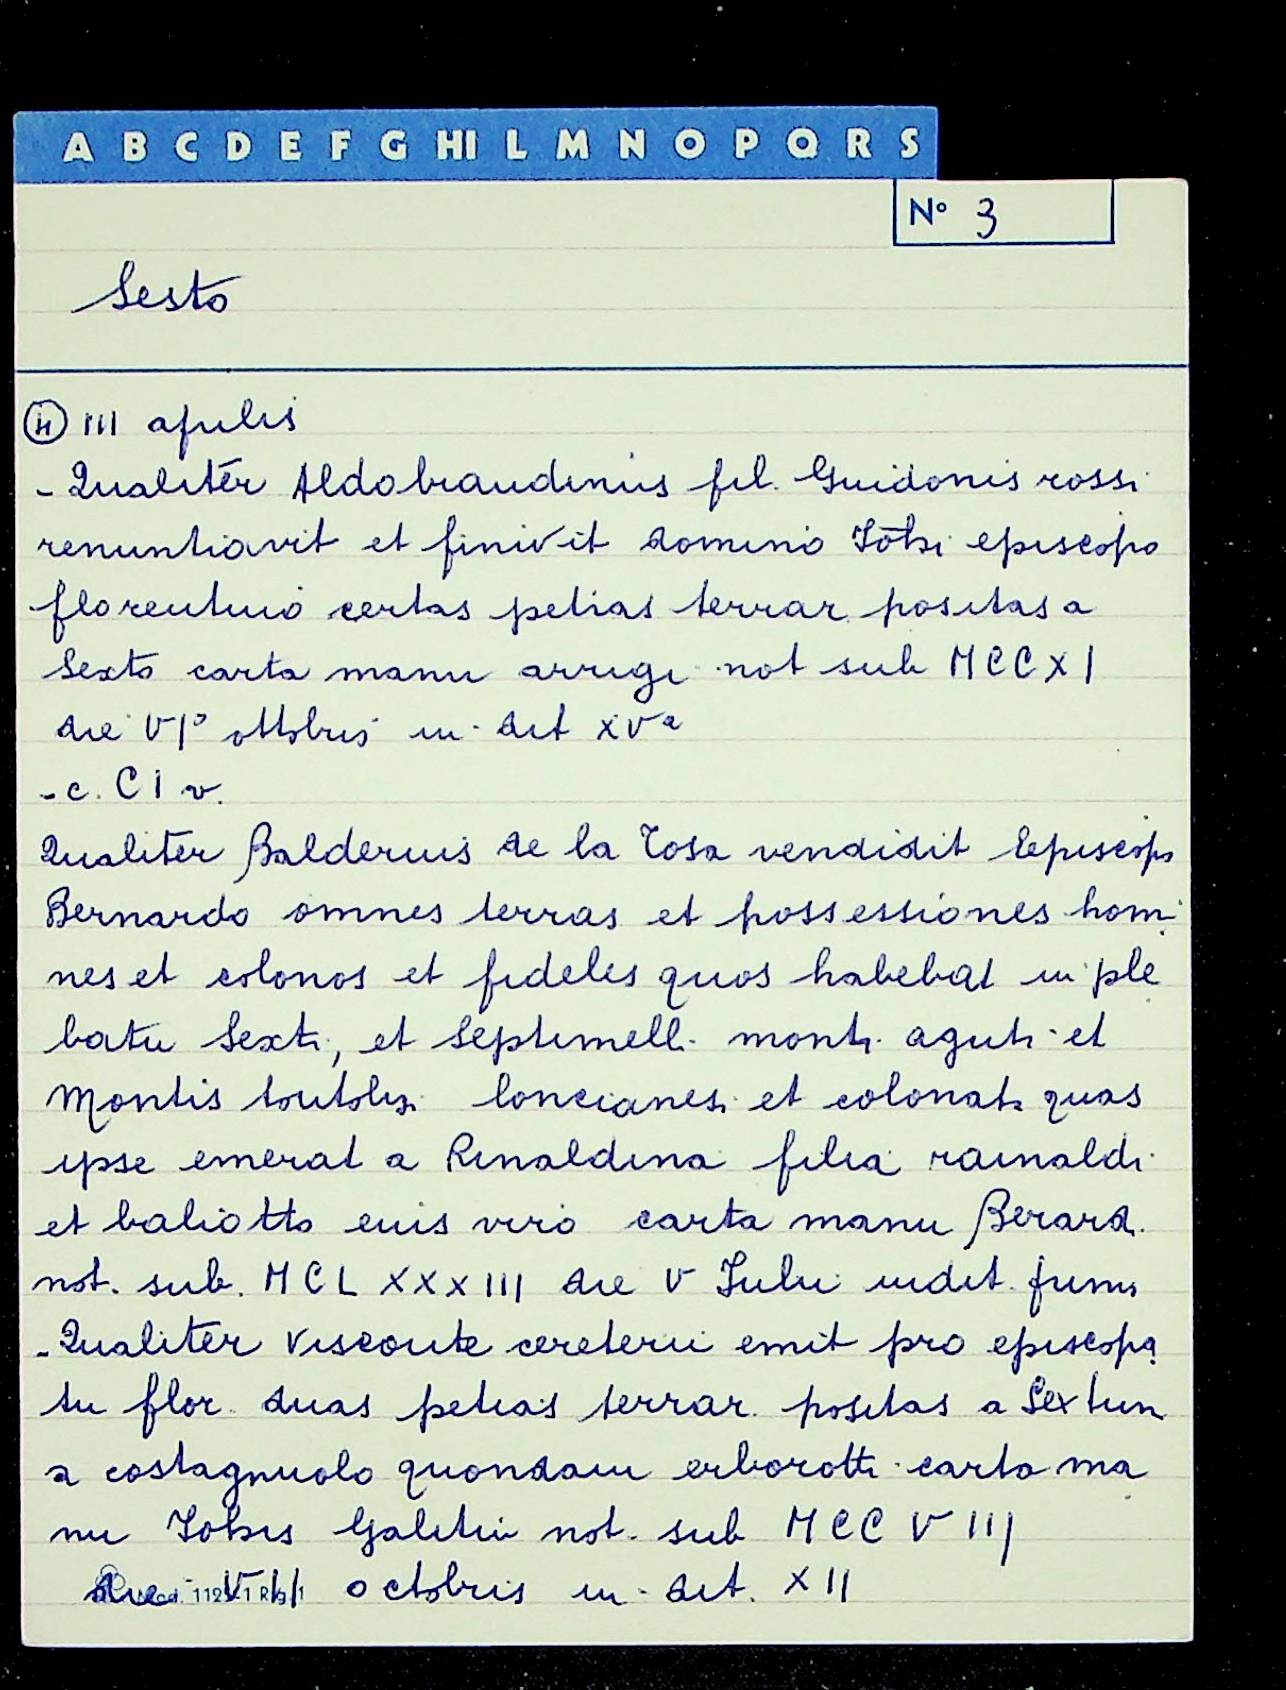 A B C D E F G HI L M N O P Q R S
N° 3
Sesto
III aprilis
- Qualiter Aldobrandinus fil. Guidonis rossi
renuntiavit et finivit domino Iohi episcopo
florentino certas petias terrar. positas a
Sexto carta manu arrigi not sub MCCXI
die VI° ottobris in dit XVa
- c. CI v.
Qualiter Baldevinus de la Tosa vendidit Episcopo
Bernardo omnes terras et possessiones homi
nes et colonos et fideles quos habebat in ple
batu Sexti, et Septimelli monti aguti et
Montis loncianesi et colonati quas
ipse emerat a Rinaldina filia rainaldi
et baliotto eius viro carta manu Berard.
not. sub. MCLXXXIII die V Iulii indit.
- Qualiter Visconte emit pro episcopa
tu flor. duas petias terrar. positas a Sextum
a costagnuolo quondam erborotti carta ma
nu Iohis Galitii not. sub MCCVIII
die VIII octobris in dit. XII